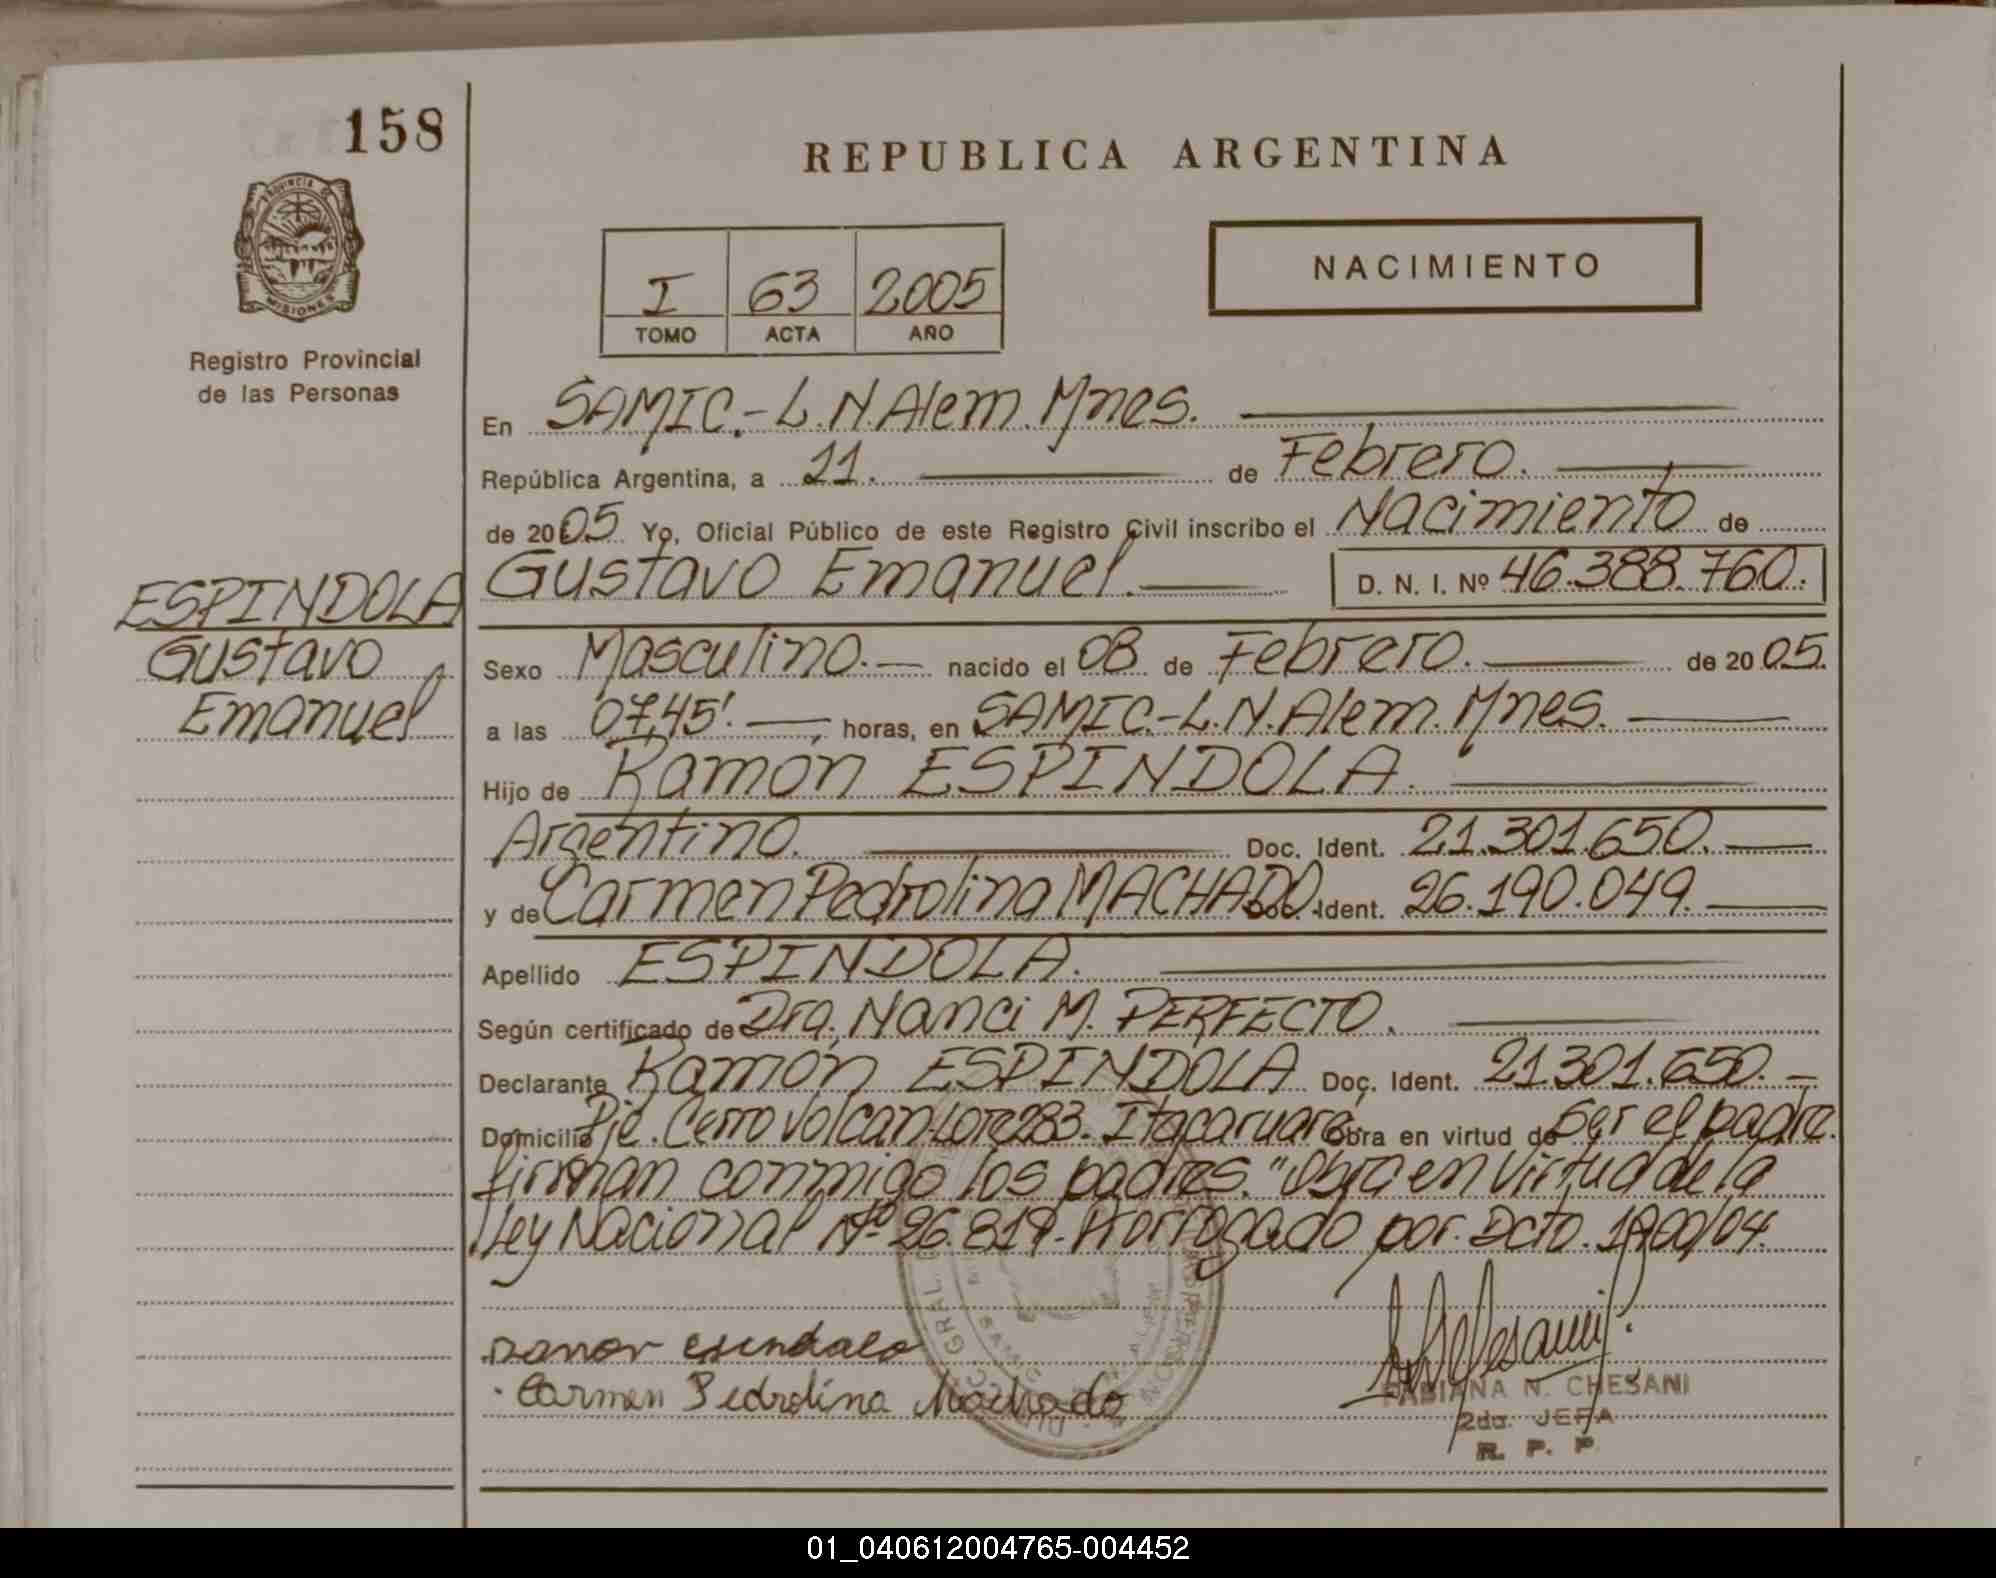 158
REPUBLICA ARGENTINA
PROVINCIA DE
MISIONES
Registro Provincial
de las Personas
I 63 2005
TOMO ACTA AÑO
NACIMIENTO
En SAMIC.- L.N.Alem. Mnes.
República Argentina, a 11. de Febrero.
de 2005 Yo, Oficial Público de este Registro Civil inscribo el Nacimiento de
Gustavo Emanuel. D. N. I. Nº 46.388.760.
ESPINDOLA
Gustavo
Emanuel
Sexo Masculino. nacido el 08 de Febrero. de 2005.
a las 07,45'. horas, en SAMIC.-L.N.Alem. Mnes.
Hijo de Ramón ESPINDOLA.
Argentino. Doc. Ident. 21.301.650.
y de Carmen Pedrolina MACHADO Doc. Ident. 26.190.049.
Apellido ESPINDOLA.
Según certificado de Dra. Nanci M. PERFECTO.
Declarante Ramón ESPINDOLA Doc. Ident. 21.301.650.
Domicilio Pje. Cerro Volcan-Lote 283. Itacaruaré. Obra en virtud de Ser el padre.
firman conmigo los padres. "Obra en Virtud de la
Ley Nacional Nº 26.819. Prorrogado por. Dcto. 1900/04.
Carmen Pedrolina Machado
FABIANA N. CHESANI
2da. JEFA
R. P. P.
01_040612004765-004452